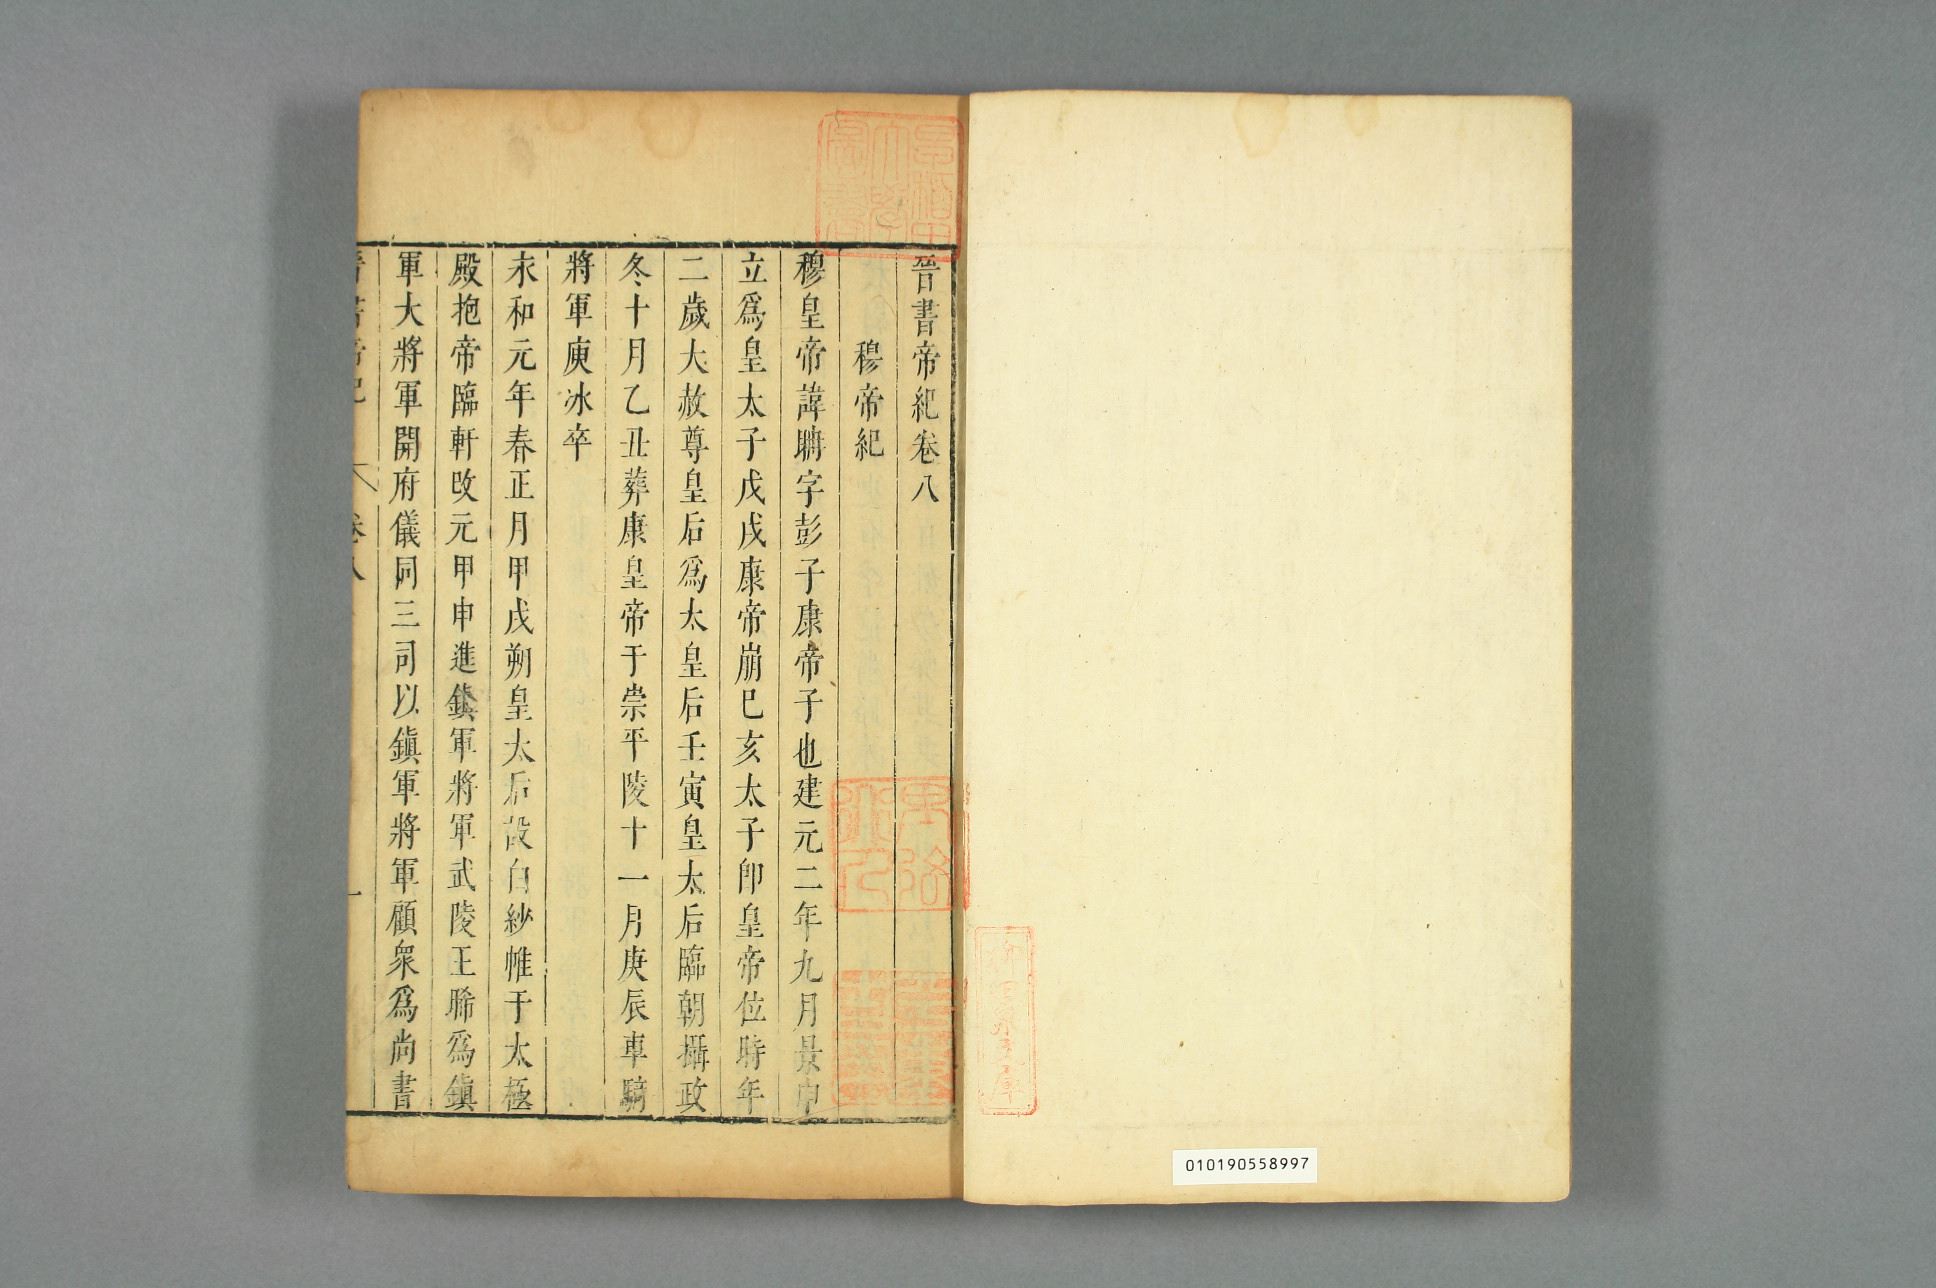 晉書帝紀卷八
穆帝紀
穆皇帝諱聃字彭子康帝子也建元二年九月景申
立爲皇太子戊戌康帝崩巳亥太子卽皇帝位時年
二歲大赦尊皇后爲太皇后壬寅皇太后臨朝攝政
冬十月乙丑葬康皇帝于崇平陵十一月庚辰車騎
將軍庾冰卒
永和元年春正月甲戌朔皇太后設白紗帷于太極
殿抱帝臨軒改元甲申進鎮軍將軍武陵王晞爲鎮
軍大將軍開府儀同三司以鎮軍將軍顧衆爲尚書
晉書帝紀 卷八 一
010190558997